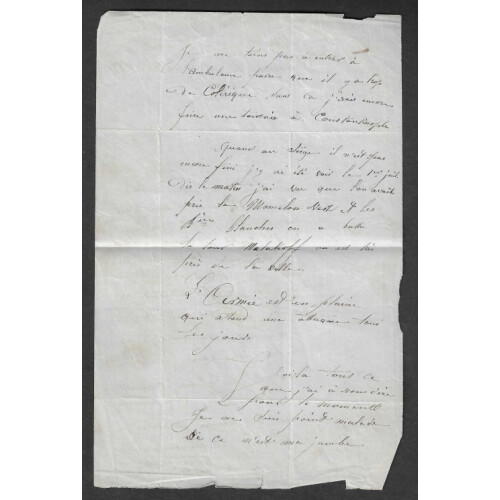 Je ne tiens pas a entrer à
l'ambulance parce que il y a trop
de Colérique sans ca j'irais encore
faire une tournée à Constantinople
Quand au Siège il n'est pas
encore fini j'y ai été voir le 1er juin
Dès le matin j'ai vu que l'on avait
pris le Mamelon Vert et les
blanches on a
la tour Malakoff on est très
près de la ville
L'Armée est en plaine
qui attend une attaque tous
les jours
Voila tout ce
que j'ai à vous dire
pour le moment
Je ne suis point malade
De ce n'est ma jambe